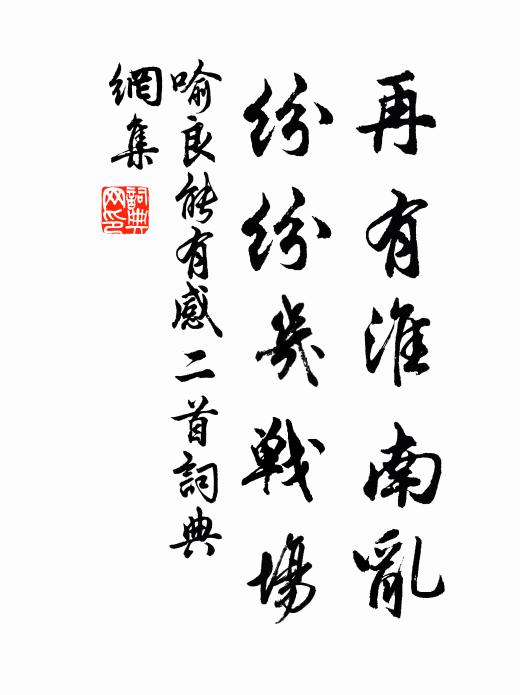 再有淮南亂
紛紛幾戰場
喻良能有感二首詞典
網集
詞典
網印